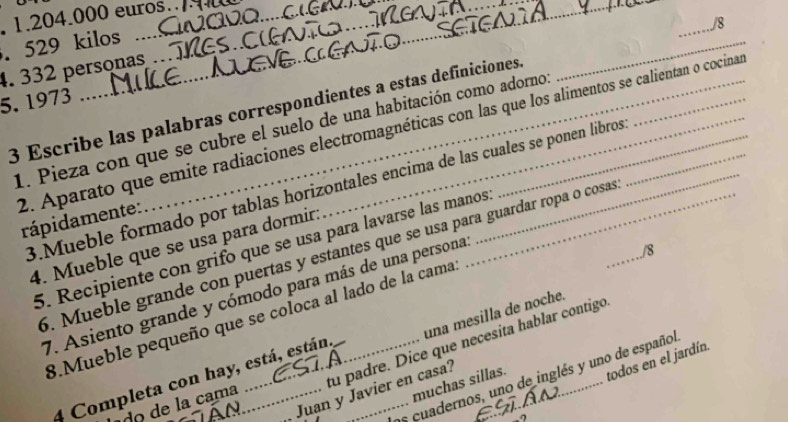 . 1.204.000 euros
. 529 kilos CINQVO CIEN
4. 332 personas TRES CIENTO TRENTA
5. 1973 MILLE NUEVE CCENTO SETENTA Y
/8
3 Escribe las palabras correspondientes a estas definiciones.
1. Pieza con que se cubre el suelo de una habitación como adorno:
2. Aparato que emite radiaciones electromagnéticas con las que los alimentos se calientan o cocinan
rápidamente:
3.Mueble formado por tablas horizontales encima de las cuales se ponen libros:
4. Mueble que se usa para dormir:
5. Recipiente con grifo que se usa para lavarse las manos:
6. Mueble grande con puertas y estantes que se usa para guardar ropa o cosas:
7. Asiento grande y cómodo para más de una persona:
8.Mueble pequeño que se coloca al lado de la cama:
/8
4 Completa con hay, está, están.
do de la cama ESTA una mesilla de noche.
TÁN tu padre. Dice que necesita hablar contigo.
Juan y Javier en casa?
muchas sillas.
cuadernos, uno de inglés y uno de español.
ESTÁN todos en el jardín.